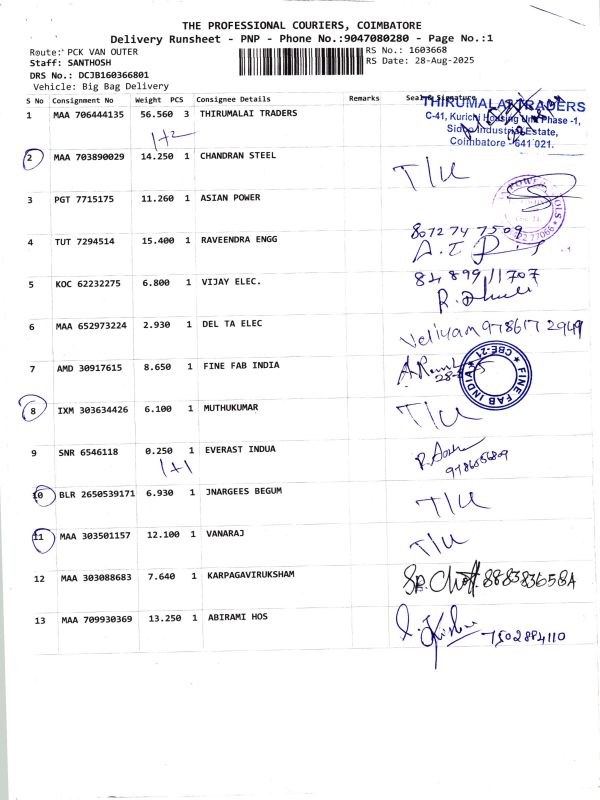 THE PROFESSIONAL COURIERS, COIMBATORE
Delivery Runsheet - PNP - Phone No.:9047080280 - Page No.:1
Route: PCK VAN OUTER RS No.: 1603668
Staff: SANTHOSH RS Date: 28-Aug-2025
DRS No.: DCJB160366801
Vehicle: Big Bag Delivery
S No Consignment No Weight PCS Consignee Details Remarks Seal & Signature
1 MAA 706444135 56.560 3 THIRUMALAI TRADERS
1+2
THIRUMALAI TRADERS
C-41, Kurichi Housing Unit Phase -1,
Sidco Industrial Estate,
Coimbatore - 641 021.
2 MAA 703890029 14.250 1 CHANDRAN STEEL T/U
3 PGT 7715175 11.260 1 ASIAN POWER
4 TUT 7294514 15.400 1 RAVEENDRA ENGG 8072747509
5 KOC 62232275 6.800 1 VIJAY ELEC. 84899 11707
6 MAA 652973224 2.930 1 DEL TA ELEC Veliyam 978617 2949
7 AMD 30917615 8.650 1 FINE FAB INDIA
FINE FAB INDIA
CBE-21
8 IXM 303634426 6.100 1 MUTHUKUMAR T/U
9 SNR 6546118 0.250 1 EVERAST INDUA
1+1
10 BLR 2650539171 6.930 1 JNARGEES BEGUM T/U
11 MAA 303501157 12.100 1 VANARAJ T/U
12 MAA 303088683 7.640 1 KARPAGAVIRUKSHAM
13 MAA 709930369 13.250 1 ABIRAMI HOS 7502884110